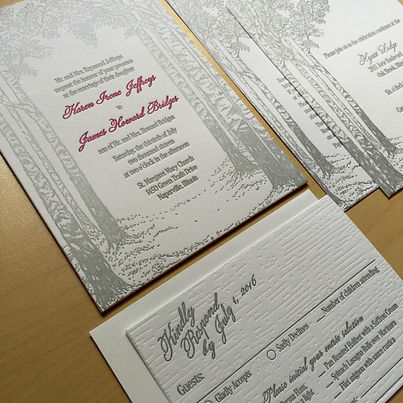 Mr. and Mrs. Raymond Jeffreys
request the honour of your presence
at the marriage of their daughter
Karen Irene Jeffreys
to
James Howard Bridges
son of Mr. and Mrs. Howard Bridges
Saturday, the thirtieth of July
two thousand sixteen
two o'clock in the afternoon
St. Margaret Mary Church
1450 Green Trails Drive
Naperville, Illinois
Please join us on the celebration continues at the
Hyatt Lodge
2815 Jorie Boulevard
Oak Brook, Illinois
Kindly
Respond
by July 1, 2016
Guests:
Gladly Accepts
Sadly Declines
Number of children attending
Please initial your entrée selection
Pan Roasted Halibut with a Saffron Cream
Spinach Lasagna Rolls over Marinara
Filet mignon with sauce rustica